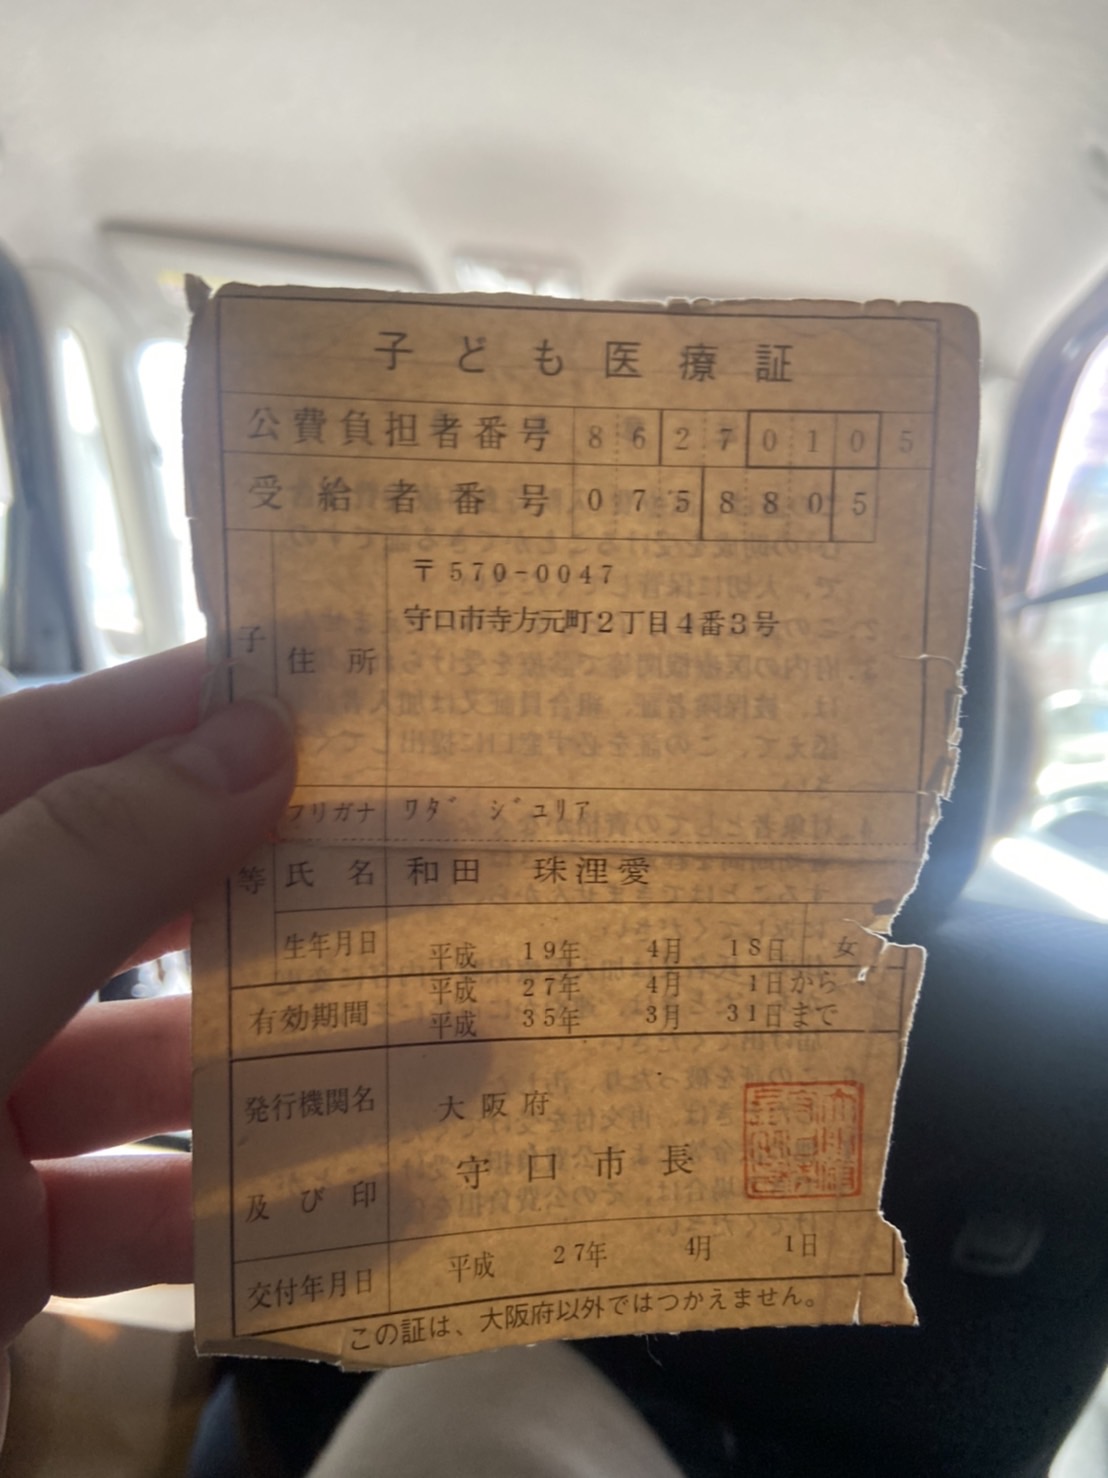 子ども医療証
公費負担者番号 8 6 2 7 0 1 0 5
受給者番号 0 7 5 8 8 0 5
子
等
住所
〒570-0047
守口市寺方元町2丁目4番3号
フリガナ ワダ ジュリア
氏名 和田 珠浬愛
生年月日 平成 19年 4月 18日 女
有効期間
平成 27年 4月 1日から
平成 35年 3月 31日まで
発行機関名
及び印
大阪府
守口市長
交付年月日 平成 27年 4月 1日
この証は、大阪府以外ではつかえません。